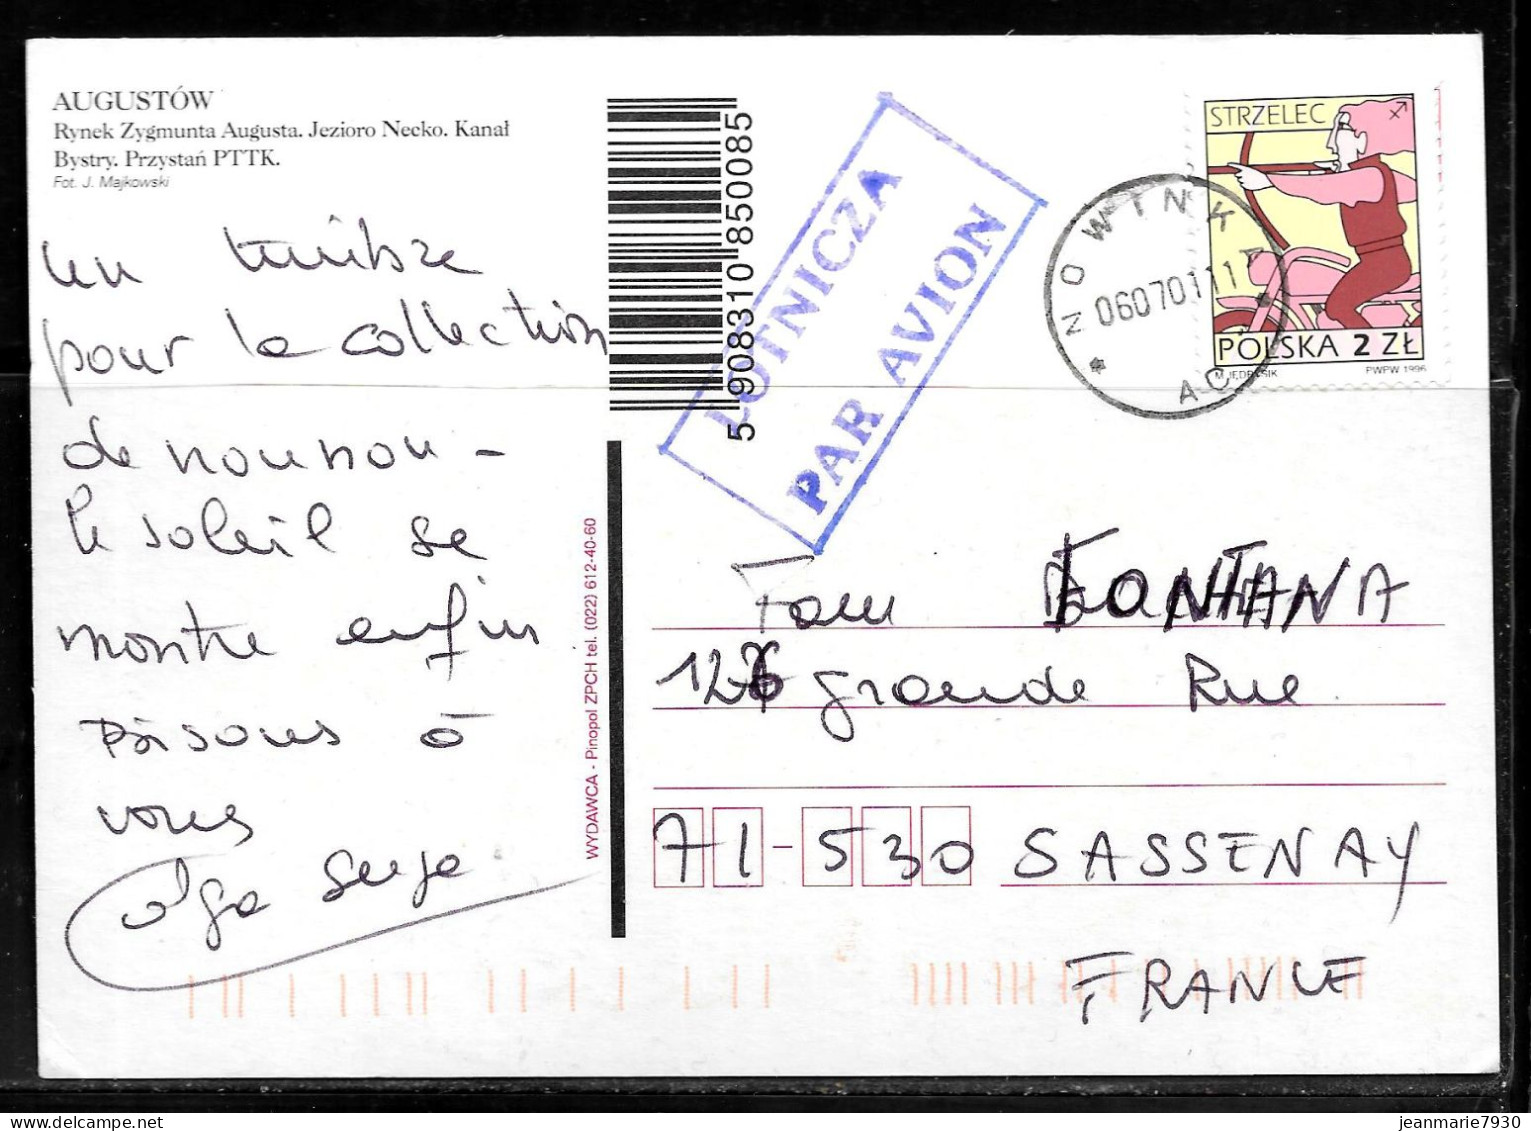 AUGUSTÓW
Rynek Zygmunta Augusta. Jezioro Necko. Kanał
Bystry. Przystań PTTK.
Fot. J. Majkowski
un timbre
pour la collection
de nounou -
le soleil se
montre enfin
bisous à
vous
Olga Serge
5 908310 850085
LOTNICZA
PAR AVION
WYDAWCA - Pinopol ZPCH tel. (022) 612-40-60
STRZELEC
POLSKA 2 ZŁ
M. JĘDRYSIK
PWPW 1996
NOWINKA
060701 11
AC
Fam FONTANA
126 grande Rue
71-530 SASSENAY
FRANCE
jeanmarie7930